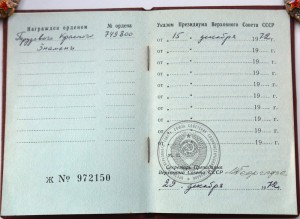 Награжден орденом
№ ордена
Трудового Красного
Знамени
745800
Ж № 972150
Указом Президиума Верховного Совета СССР
от 15 декабря 1972 г.
от 19 г.
от 19 г.
от 19 г.
от 19 г.
от 19 г.
от 19 г.
от 19 г.
от 19 г.
Секретарь Президиума
Верховного Совета СССР
23 декабря 1972 г.